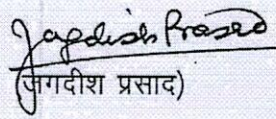 Jagdish Prasad
(जगदीश प्रसाद)